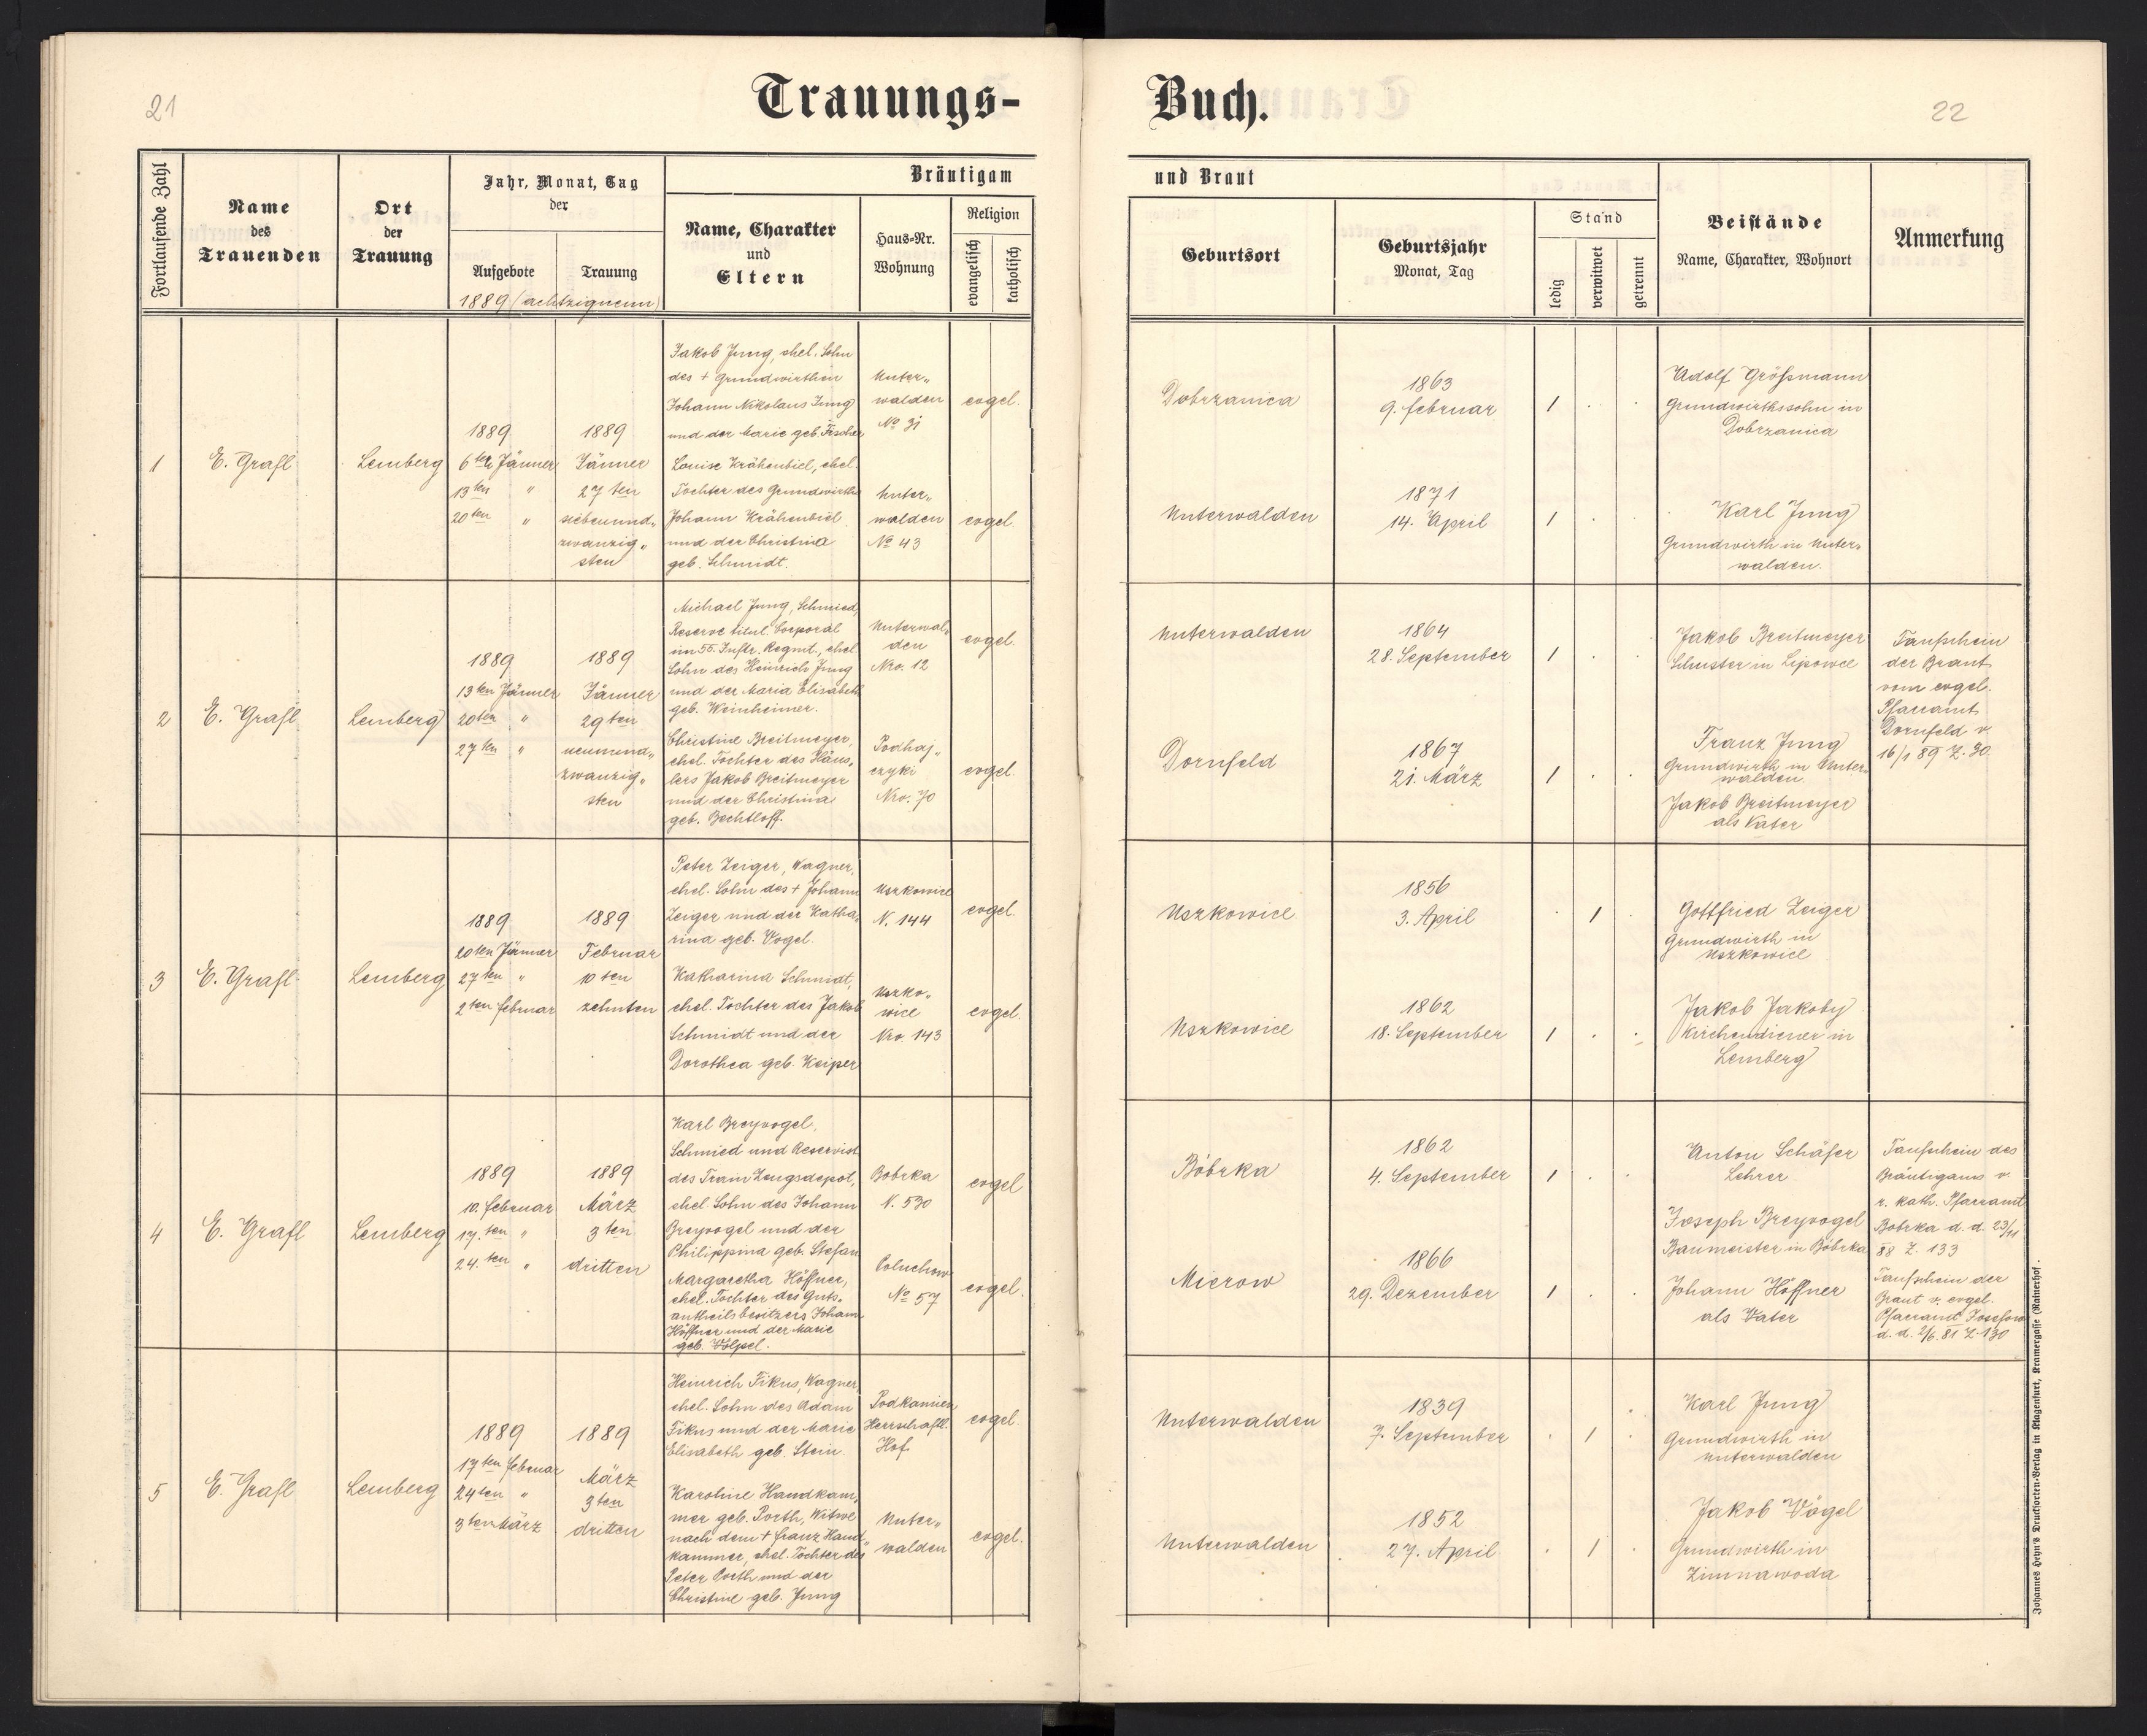 21
Trauungs-
Buch.
22
Fortlaufende Zahl
Name
des
Trauenden
Ort
der
Trauung
Jahr, Monat, Tag
der
Aufgebote
Trauung
1889 (achtzigneun)
Bräutigam
Name, Charakter
und
Eltern
Haus-Nr.
Wohnung
Religion
evangelisch
katholisch
und Braut
Geburtsort
Geburtsjahr
Monat, Tag
Stand
ledig
verwitwet
getrennt
Beistände
Name, Charakter, Wohnort
Anmerkung
1
E. Grafl
Lemberg
1889
6ten Jänner
13ten "
20ten "
1889
Jänner
27ten
siebenund„
zwanzig„
sten
Jakob Jung, ehel. Sohn
des + Grundwirthen
Johann Nikolaus Jung
und der Marie geb. Fischer
Louise Krähenbiel, ehel.
Tochter des Grundwirths
Johann Krähenbiel
und der Christina
geb. Schmidt.
Unter„
walden
No 31
Unter„
walden
No 43
evgel.
evgel.
Dobrzanica
Unterwalden
1863
9. Februar
1871
14. April
1 . .
1 . .
Adolf Größmann
Grundwirthssohn in
Dobrzanica
Karl Jung
Grundwirth in Unter„
walden.
2
E. Grafl
Lemberg
1889
13ten Jänner
20ten "
27ten "
1889
Jänner
29ten
neunund„
zwanzig„
sten
Michael Jung, Schmied,
Reserve titul. Corporal
im 55. Inftr. Regmt., ehel
Sohn des Heinrich Jung
und der Maria Elisabeth
geb. Weinheimer.
Christine Breitmeyer,
ehel. Tochter des Häus„
lers Jakob Breitmeyer
und der Christina
geb. Bechtloff.
Unterwal„
den
Nro. 12
Podhaj„
czyki
Nro. 70
evgel.
evgel.
Unterwalden
Dornfeld
1864
28. September
1867
21. März
1 . .
1 . .
Jakob Breitmeyer
Schuster in Lipowce
Franz Jung
Grundwirth in Unter„
walden.
Jakob Breitmeyer
als Vater
Taufschein
der Braut
vom evgel.
Pfarramt
Dornfeld v.
16/1 89 Z. 30.
3
E. Grafl
Lemberg
1889
20ten Jänner
27ten "
2ten Februar
1889
Februar
10ten
zehnten
Peter Zeiger, Wagner,
ehel. Sohn des + Johann
Zeiger und der Katha„
rina geb. Vogel.
Katharina Schmidt,
ehel. Tochter des Jakob
Schmidt und der
Dorothea geb. Keiper
Uszkowice
N. 144
Uszko„
wice
Nro. 143
evgel.
evgel.
Uszkowice
Uszkowice
1856
3. April
1862
18. September
. 1 .
1 . .
Gottfried Zeiger
Grundwirth in
Uszkowice
Jakob Jakoby
Kirchendiener in
Lemberg
4
E. Grafl
Lemberg
1889
10. Februar
17. ten "
24. ten "
1889
März
3ten
dritten
Karl Breyvogel,
Schmied und Reservist
des Train Zeugsdepot,
ehel. Sohn des Johann
Breyvogel und der
Philippina geb. Stefan
Margaretha Höffner,
ehel. Tochter des Guts„
antheilsbesitzers Johann
Höffner und der Marie
geb. Völpel.
Bobrka
N. 530
Coluchow
No 57
evgel
evgel.
Bóbrka
Mierow
1862
4. September
1866
29. Dezember
1 . .
1 . .
Anton Schäfer
Lehrer
Joseph Breyvogel
Baumeister in Bóbrka
Johann Höffner
als Vater
Taufschein des
Bräutigams v.
r. kath. Pfarramt
Bobrka d. d. 23/11
88 Z. 133
Taufschein der
Braut v. evgel.
Pfarramt Josefow
d. d. 2/6. 81 Z. 130
5
E. Grafl
Lemberg
1889
17ten Februar
24ten "
3ten März
1889
März
3ten
dritten
Heinrich Fikus, Wagner,
ehel. Sohn des Adam
Fikus und der Marie
Elisabeth geb. Stein.
Karoline Handkam„
mer geb. Porth, Witwe
nach dem + Franz Hand„
kammer, ehel. Tochter des
Peter Porth und der
Christine geb. Jung
Podkamien
Herrschaftl.
Hof
Unter„
walden
evgel.
evgel.
Unterwalden
Unterwalden
1839
7. September
1852
27. April
. 1 .
. 1 .
Karl Jung
Grundwirth in
Unterwalden
Jakob Vögel
Grundwirth in
Zimnawoda
Johannes Heyn's Drucksorten-Verlag in Klagenfurt, Kramergasse (Rainerhof).